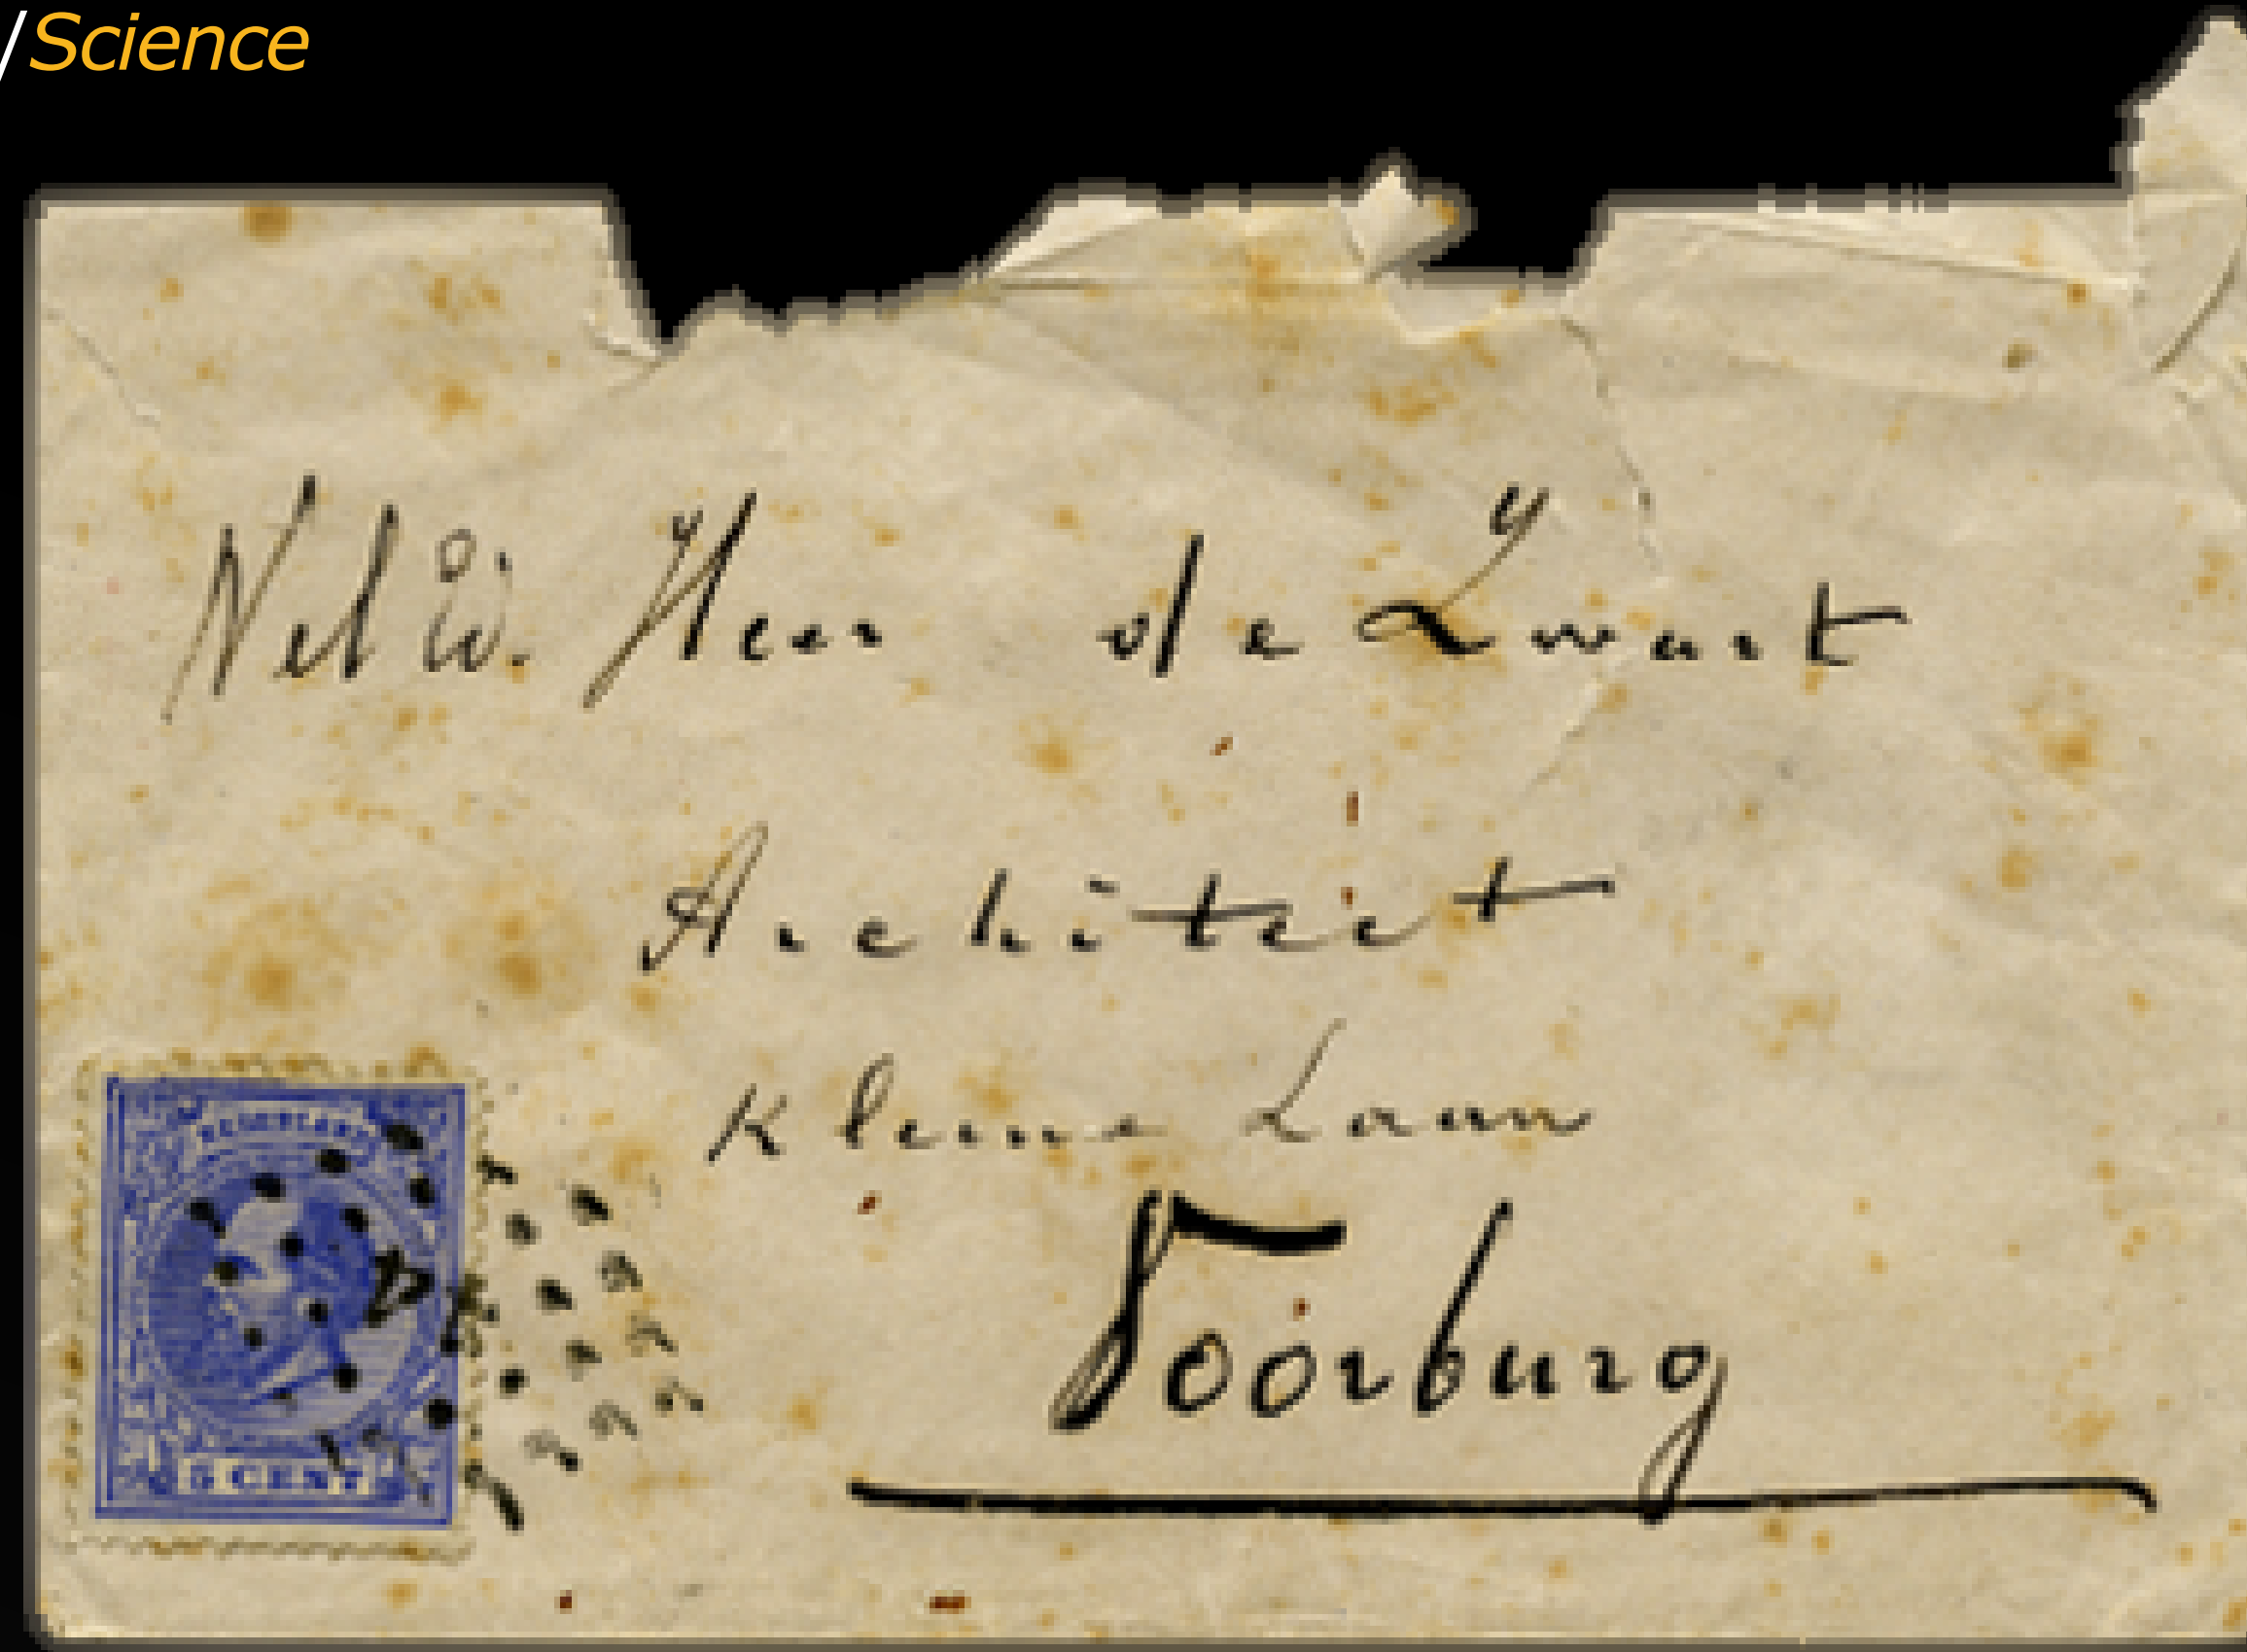 /Science
Wel Ed. Heer de Zwart
Architect
Kleine Laan
Voorburg
NEDERLAND
5 CENT